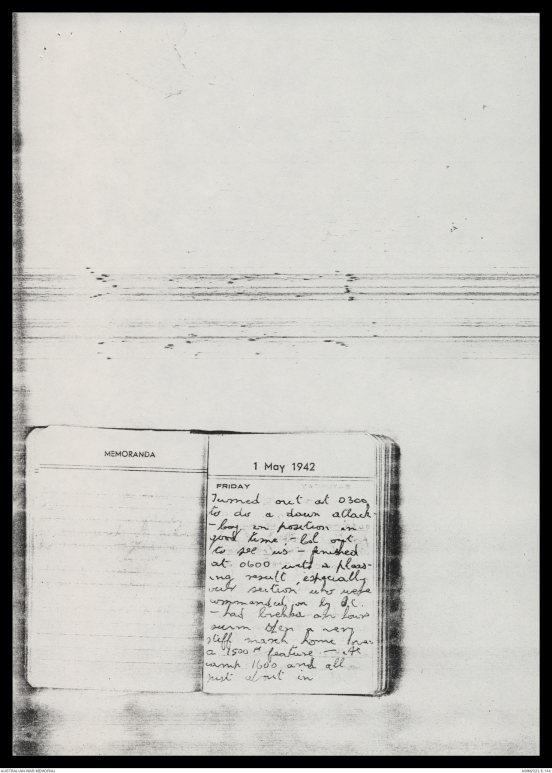 MEMORANDA
1 May 1942
FRIDAY
Turned out at 0300
to do a dawn attack
- boy in position in
good time. - Col out
to see us - finished
at 0600 with a pleas-
ing result, especially
our section who were
commanded on by O.C.
- had brekka an hour
swim then a very
stiff march home
a 1500 feature - At
camp 1600 and all
just about in
AUSTRALIAN WAR MEMORIAL